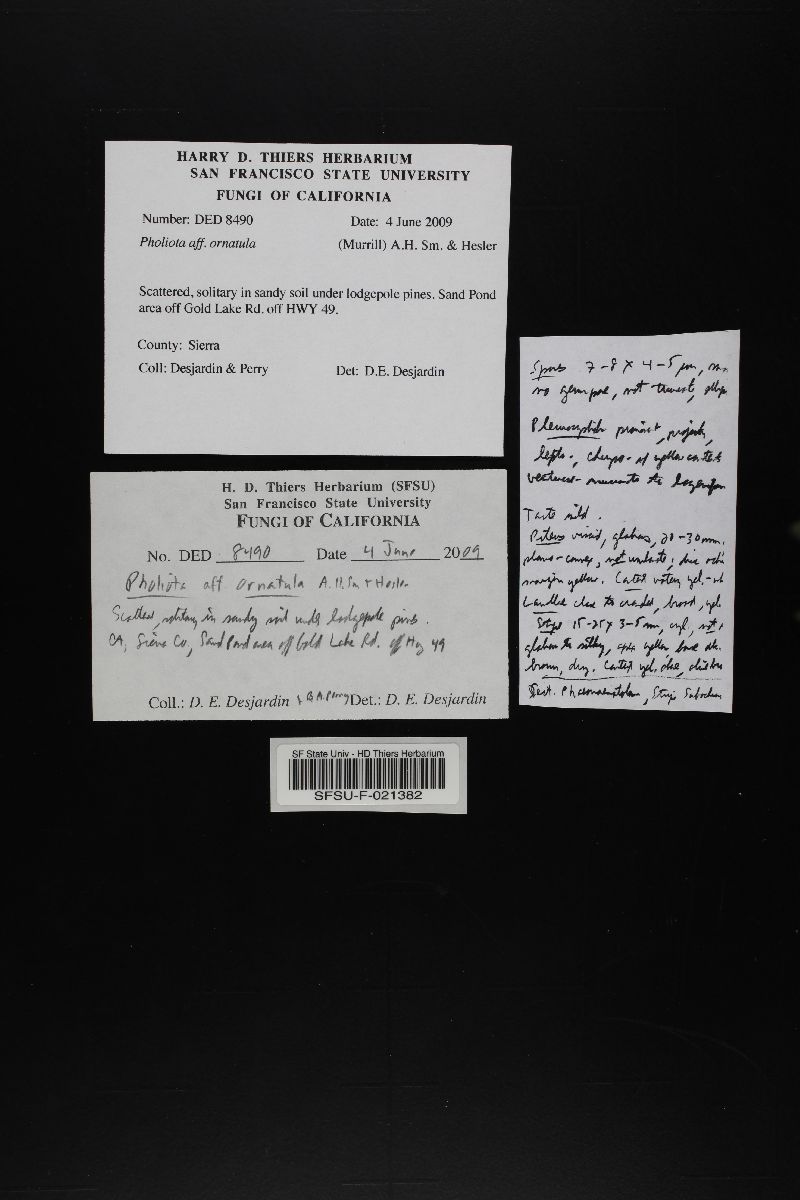 HARRY D. THIERS HERBARIUM
SAN FRANCISCO STATE UNIVERSITY
FUNGI OF CALIFORNIA
Number: DED 8490 Date: 4 June 2009
Pholiota aff. ornatula (Murrill) A.H. Sm. & Hesler
Scattered, solitary in sandy soil under lodgepole pines. Sand Pond
area off Gold Lake Rd. off HWY 49.
County: Sierra
Coll: Desjardin & Perry Det: D.E. Desjardin
H. D. Thiers Herbarium (SFSU)
San Francisco State University
FUNGI OF CALIFORNIA
No. DED 8490 Date 4 June 2009
Pholiota aff ornatula A.H.Sm + Hesler
Scattered, solitary in sandy soil under lodgepole pines.
CA, Sierra Co, Sand Pond area off Gold Lake Rd. off Hwy 49
Coll.: D. E. Desjardin & B.A. Perry Det.: D. E. Desjardin
Spores 7-8 x 4-5 µm,
no germ pore, not truncate,
Pleurocystidia prominent, project,
lepto-, chryso- w/ yellow contents
ventricose-mucronate to lageniform
Taste mild.
Pileus viscid, glabrous, 20-30mm.
plano-convex, not umbonate, disc
margin yellow. Context watery yel-
Lamellae close to crowded, broad, yel
Stipe 15-25 x 3-5 mm, cyl, not
glabrous to silky, apex yellow, base dk.
brown, dry. Context yel.
Sect. Phaeonaematoloma, Stirps Subochracea
SF State Univ - HD Thiers Herbarium
SFSU-F-021382